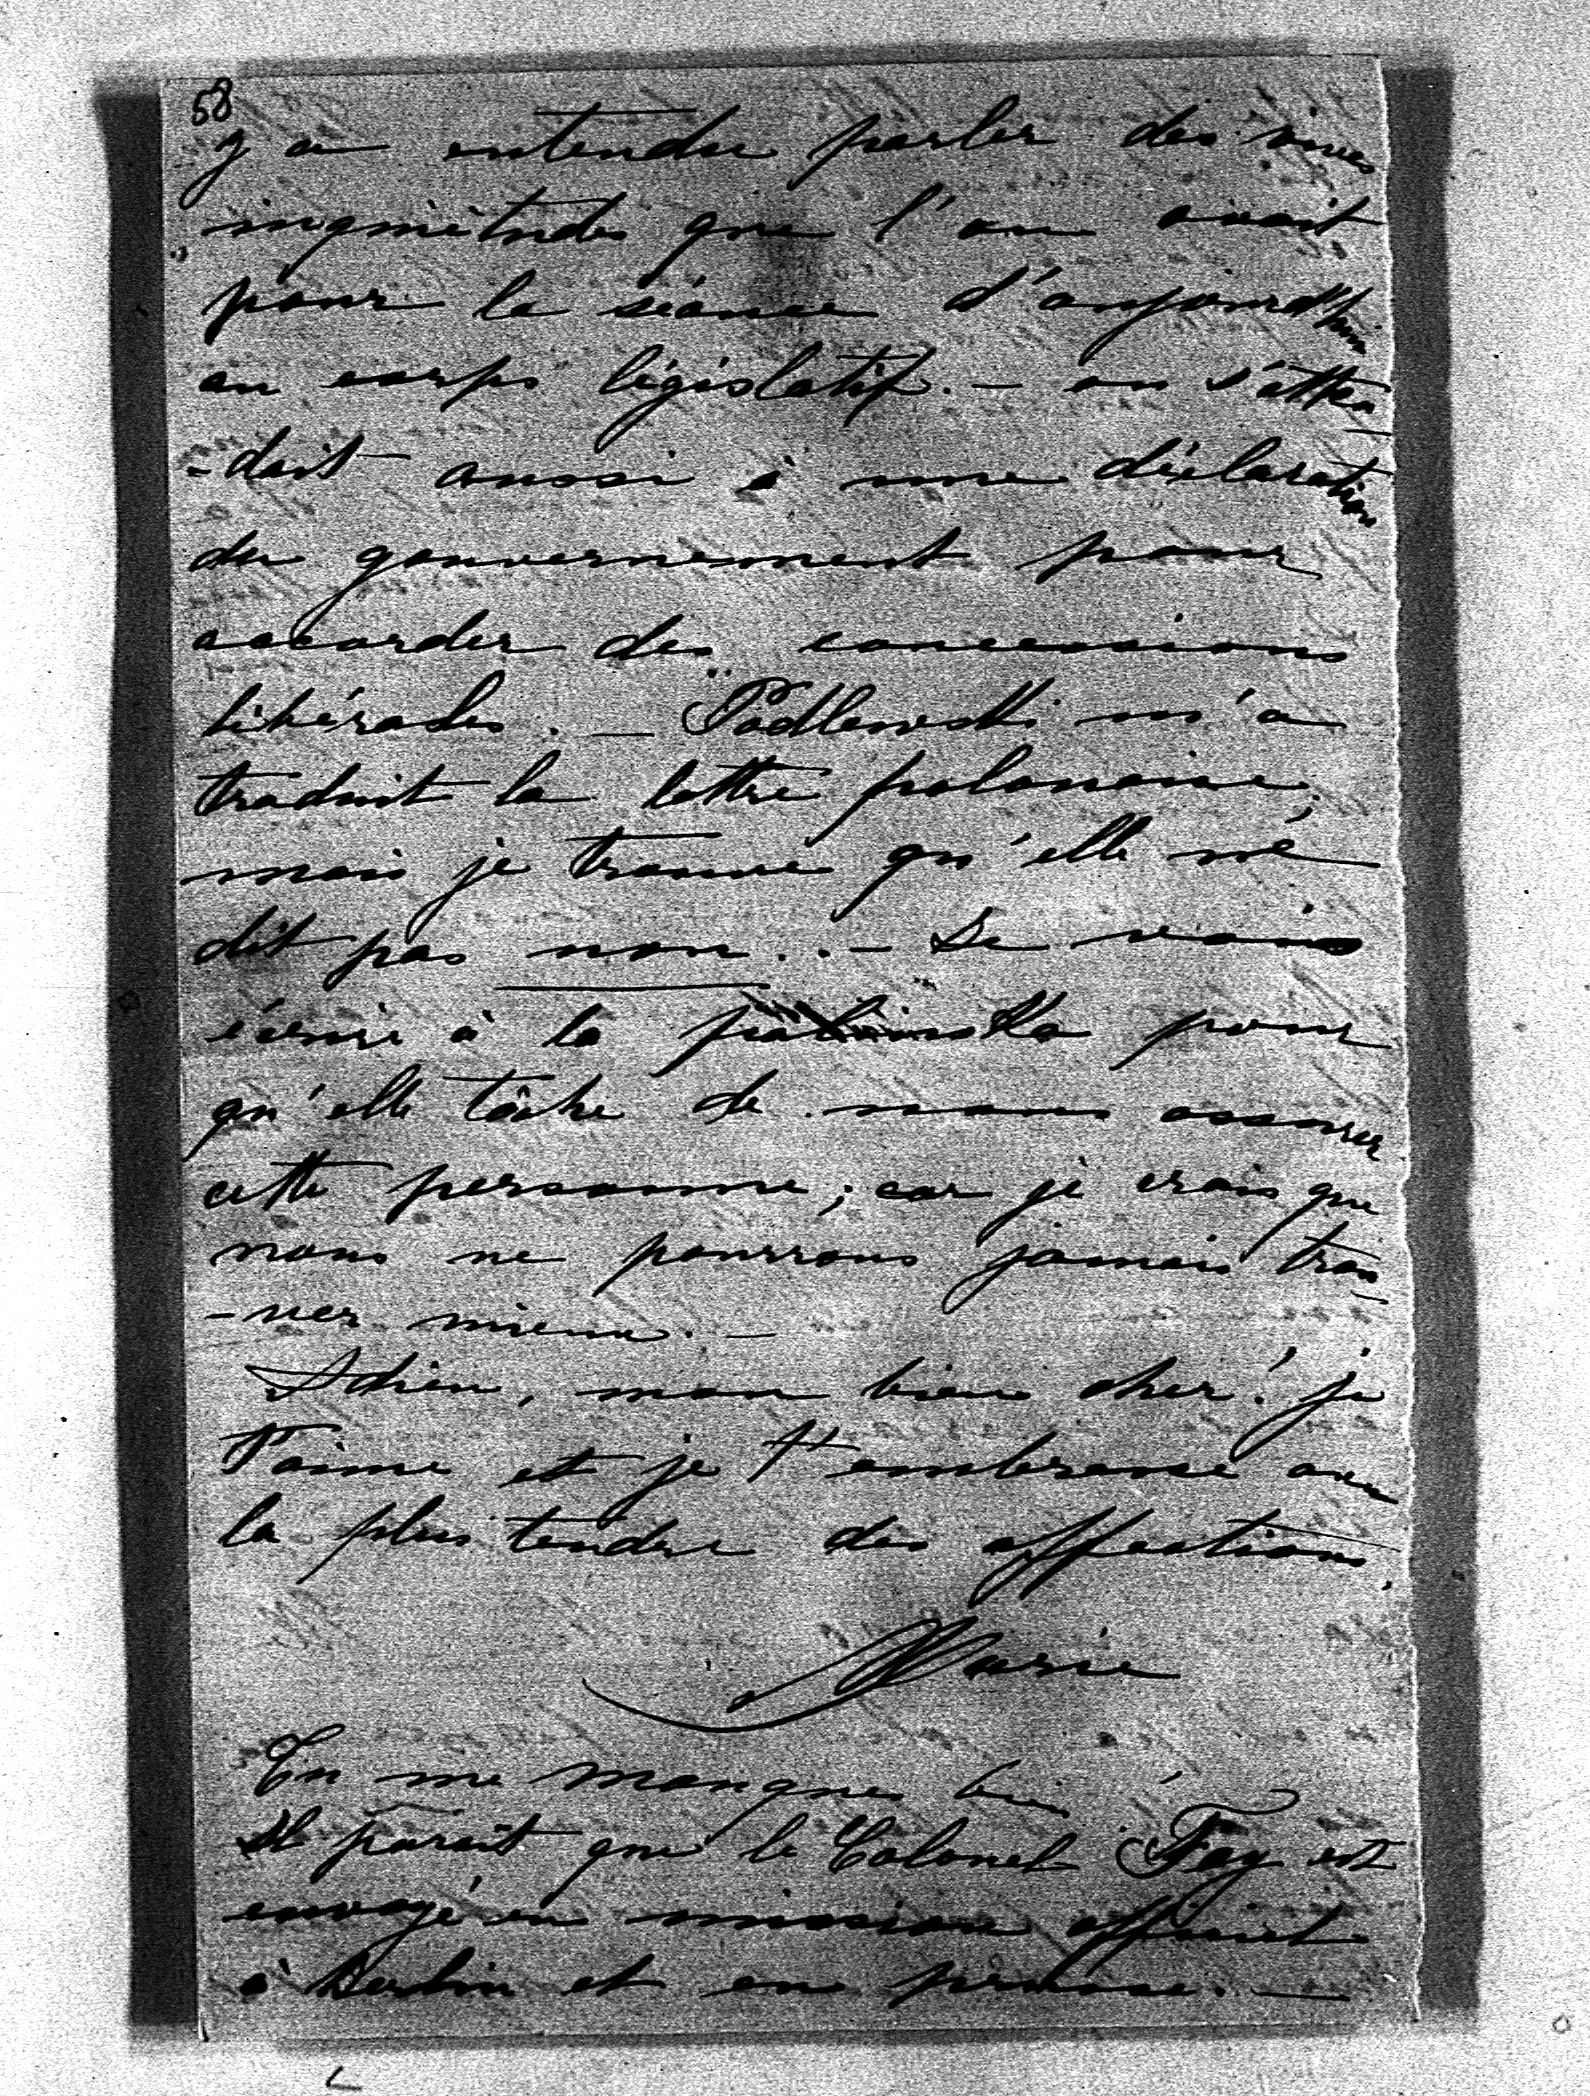 58
y a entendu parler des vives
inquiètudes que l'on avait
pour la séance d'aujourd'hui
au corps législatif. — on s'atten
-dait aussi à une déclaration
du gouvernement pour
accorder des concessions
libérales. — Podlewski m'a
traduit la lettre polonaise;
mais je trouve qu'elle ne
dit pas non. . — Je vais
écrire à la pour
qu'elle tâche de nous assurer
cette personne; car je crois que
nous ne pourrons jamais trou
-ver mieux. —
Adieu, mon bien cher! je
t'aime et je t'embrasse avec
la plus tendre des affections.
Marie
Tu me manques bien!
Il parait que le Colonel Fay est
envoyé en mission officiel
à Berlin et en prusse. —